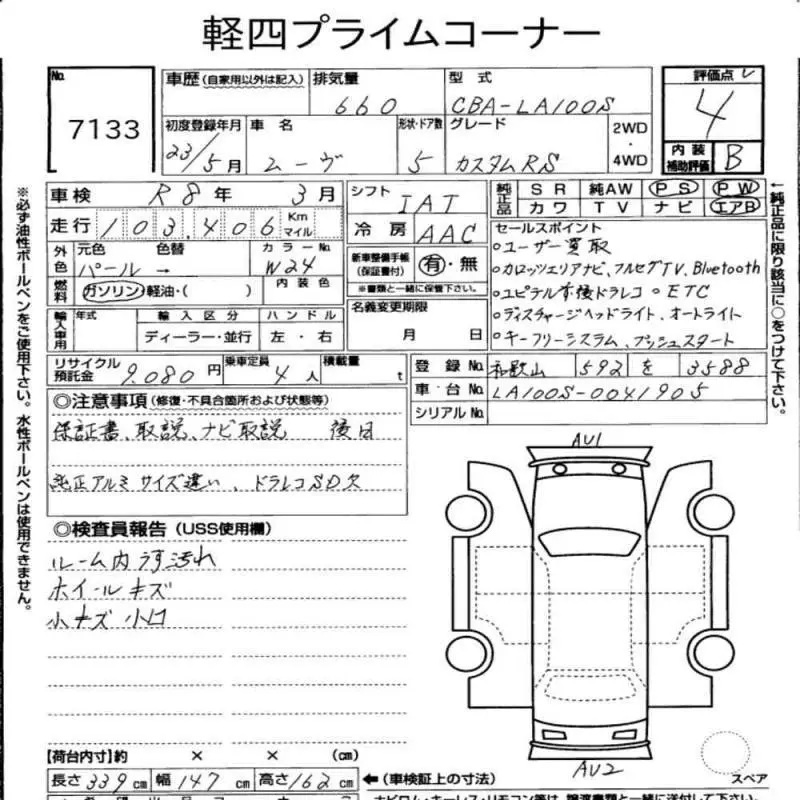 軽四プライムコーナー
No. 7133
車歴(自家用以外は記入) 排気量 660 型式 CBA-LA100S 評価点 4
初度登録年月 23/5月 車名 ムーヴ 形状・ドア数 5 グレード カスタムRS 2WD・4WD 内装補助評価 B
車検 R8年 3月 シフト IAT 純正品 SR 純AW PS PW
走行 103,406 Km マイル 冷房 AAC カワ TV ナビ エアB
外色 元色 パール 色替 → カラーNo. W24
燃料 ガソリン 軽油・( ) 内装色
新車整備手帳(保証書付) 有・無
※書類と一緒に保管下さい。
セールスポイント
○ユーザー買取
○カロッツェリアナビ、フルセグTV、Bluetooth
○ユピテル前後ドラレコ ○ETC
○ディスチャージヘッドライト、オートライト
○キーフリーシステム、プッシュスタート
輸入車用 年式 輸入区分 ディーラー・並行 ハンドル 左・右
名義変更期限 月 日
リサイクル預託金 9.080円 乗車定員 4人 積載量 t
登録No. 和歌山 592 を 3588
車台No. LA100S-0041905
シリアルNo.
◎注意事項(修復・不具合箇所および状態等)
保証書、取説、ナビ取説 後日
純正アルミサイズ違い、ドラレコSD欠
◎検査員報告(USS使用欄)
ルーム内うす汚れ
ホイールキズ
小キズ 小凹
AU1
AU2
スペア
【荷台内寸】約 × × (cm)
長さ 339cm 幅 147cm 高さ 162cm ←(車検証上の寸法)
ナビロム・キーレス・リモコン等は、譲渡書類と一緒に送付して下さい。
※必ず油性ボールペンをご使用下さい。水性ボールペンは使用できません。
←純正品に限り該当に○をつけて下さい。